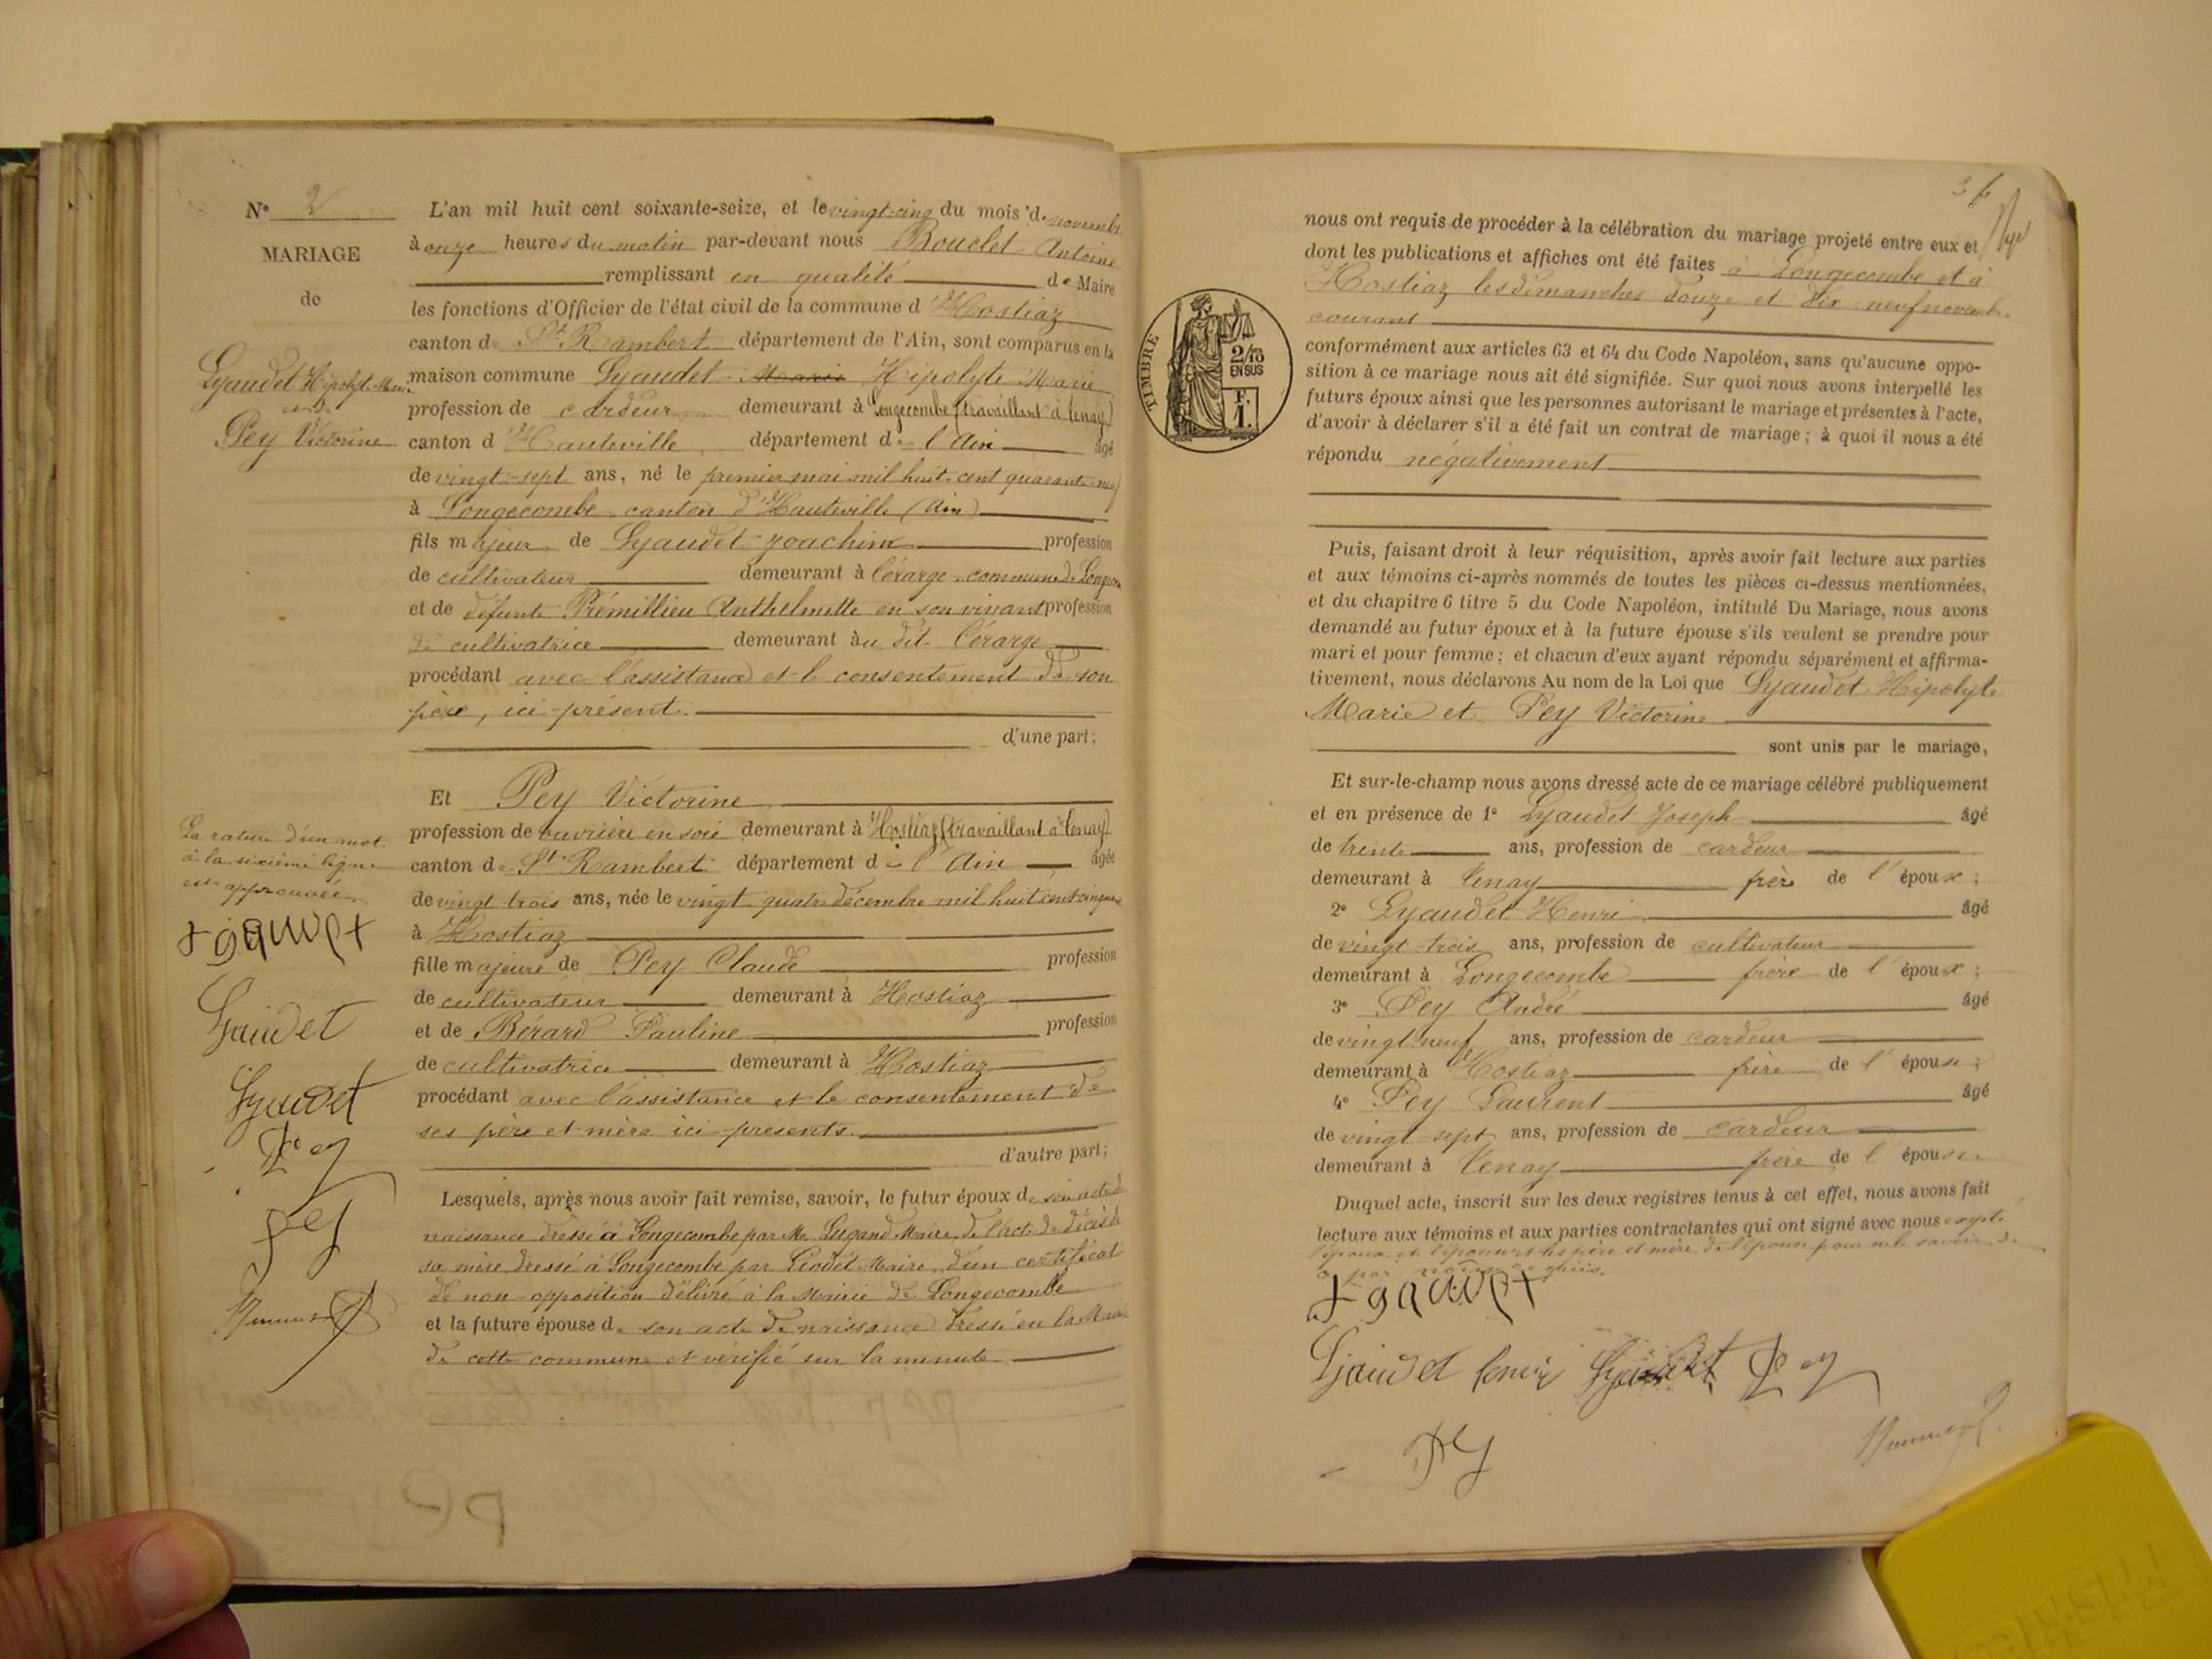 N° 2
MARIAGE
de
Lyaudet Hipolyte Marie
et
Pey Victorine
L'an mil huit cent soixante-seize, et le vingt-cinq du mois de novembre
à onze heures du matin par-devant nous Bouclet Antoine
remplissant en qualité de Maire
les fonctions d'Officier de l'état civil de la commune d'Hostiaz
canton de St Rambert département de l'Ain, sont comparus en la
maison commune Lyaudet Marie Hipolyte Marie
profession de cardeur demeurant à Longecombe (travaillant à Tenay)
canton d'Hauteville département de l'Ain âgé
de vingt-sept ans, né le premier mai mil huit cent quarante-neuf
à Longecombe canton d'Hauteville (Ain)
fils majeur de Lyaudet Joachim profession
de cultivateur demeurant à Lérarge commune de Longecom
et de défunte Prémillieu Anthelmette en son vivant profession
de cultivatrice demeurant au dit Lérarge
procédant avec l'assistance et le consentement de son
père, ici présent.
d'une part;
Et Pey Victorine
profession de ouvrière en soie demeurant à Hostiaz (travaillant à Tenay)
canton de St Rambert département de l'Ain âgée
de vingt trois ans, née le vingt quatre décembre mil huit cent cinquan
à Hostiaz
fille majeure de Pey Claude profession
de cultivateur demeurant à Hostiaz
et de Bérard Pauline profession
de cultivatrice demeurant à Hostiaz
procédant avec l'assistance et le consentement de
ses père et mère ici présents.
d'autre part;
Lesquels, après nous avoir fait remise, savoir, le futur époux de son acte de
naissance dressé à Longecombe par Me Lugand Maire, de l'acte de décès de
sa mère dressé à Longecombe par Liodet Maire, d'un certificat
de non opposition délivré à la Mairie de Longecombe
et la future épouse de son acte de naissance dressé en la Mairie
de cette commune et vérifié sur la minute
La rature d'un mot
à la sixième ligne
est approuvée.
Lyaudet
Lyaudet
Pey
Pey
34
nous ont requis de procéder à la célébration du mariage projeté entre eux et
dont les publications et affiches ont été faites à Longecombe et à
Hostiaz les dimanches douze et dix-neuf novembre
courant
TIMBRE
2/10
EN SUS
F.
1.
conformément aux articles 63 et 64 du Code Napoléon, sans qu'aucune oppo-
sition à ce mariage nous ait été signifiée. Sur quoi nous avons interpellé les
futurs époux ainsi que les personnes autorisant le mariage et présentes à l'acte,
d'avoir à déclarer s'il a été fait un contrat de mariage; à quoi il nous a été
répondu négativement
Puis, faisant droit à leur réquisition, après avoir fait lecture aux parties
et aux témoins ci-après nommés de toutes les pièces ci-dessus mentionnées,
et du chapitre 6 titre 5 du Code Napoléon, intitulé Du Mariage, nous avons
demandé au futur époux et à la future épouse s'ils veulent se prendre pour
mari et pour femme; et chacun d'eux ayant répondu séparément et affirma-
tivement, nous déclarons Au nom de la Loi que Lyaudet Hipolyte
Marie et Pey Victorine
sont unis par le mariage,
Et sur-le-champ nous avons dressé acte de ce mariage célébré publiquement
et en présence de 1° Lyaudet Joseph âgé
de trente ans, profession de cardeur
demeurant à Tenay frère de l'époux;
2° Lyaudet Henri âgé
de vingt-trois ans, profession de cultivateur
demeurant à Longecombe frère de l'époux;
3° Pey André âgé
de vingt neuf ans, profession de cardeur
demeurant à Hostiaz frère de l'épouse;
4° Pey Laurent âgé
de vingt-sept ans, profession de cardeur
demeurant à Tenay frère de l'épouse.
Duquel acte, inscrit sur les deux registres tenus à cet effet, nous avons fait
lecture aux témoins et aux parties contractantes qui ont signé avec nous excepté
l'époux et l'épouse et les père et mère de l'épouse pour ne le savoir de
ce par nous requis.
Lyaudet henri Lyaudet Pey
Pey